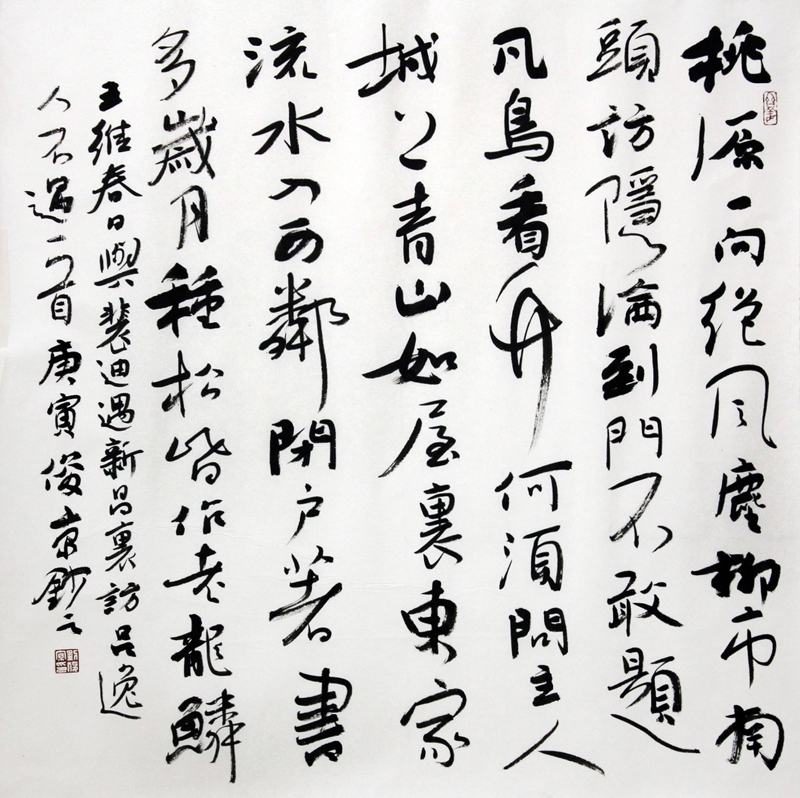 桃源一向絕風塵柳市南
頭訪隱淪到門不敢題
凡鳥看竹何須問主人
城上青山如屋裏東家
流水入西鄰閉戶著書
多歲月種松皆作老龍鱗
王維春日與裴迪遇新昌裏訪呂逸
人不遇一首庚寅俊京鈔之